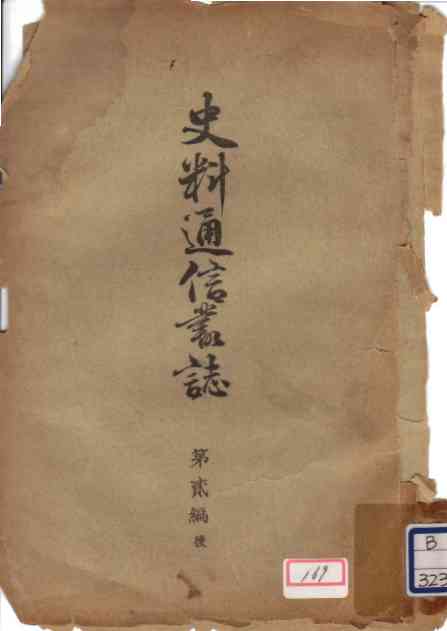 史料通信叢誌
第貳編後
169
B
323